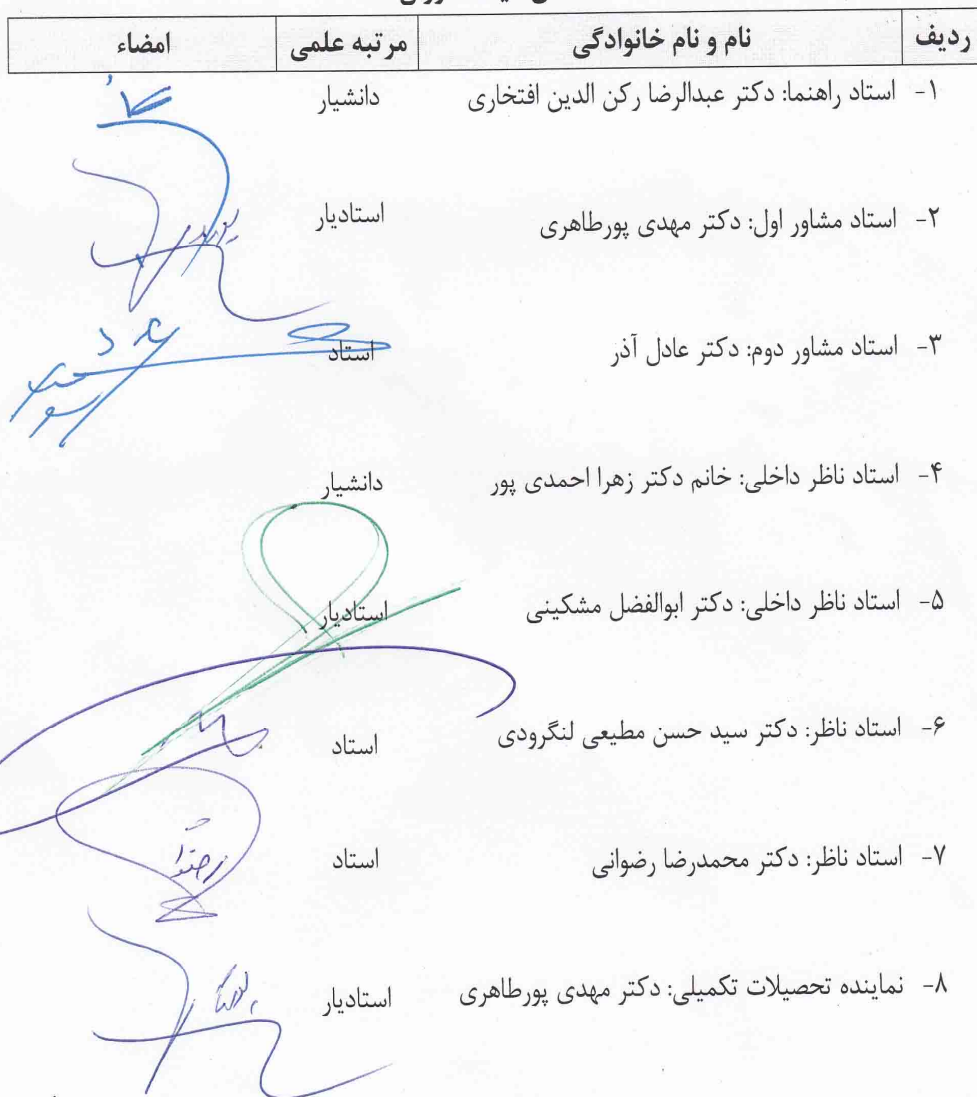 ردیف نام و نام خانوادگی مرتبه علمی امضاء
۱- استاد راهنما: دکتر عبدالرضا رکن الدین افتخاری دانشیار
۲- استاد مشاور اول: دکتر مهدی پورطاهری استادیار
۳- استاد مشاور دوم: دکتر عادل آذر استاد
۴- استاد ناظر داخلی: خانم دکتر زهرا احمدی پور دانشیار
۵- استاد ناظر داخلی: دکتر ابوالفضل مشکینی استادیار
۶- استاد ناظر: دکتر سید حسن مطیعی لنگرودی استاد
۷- استاد ناظر: دکتر محمدرضا رضوانی استاد
۸- نماینده تحصیلات تکمیلی: دکتر مهدی پورطاهری استادیار